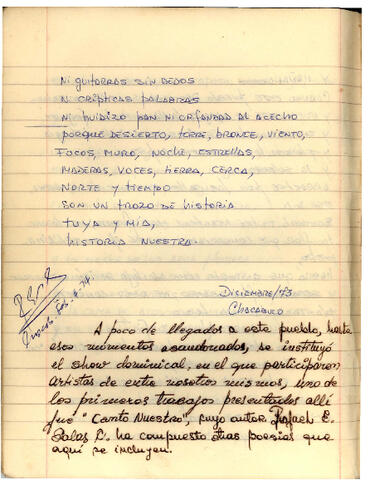 NI GUITARRAS SIN DEDOS
NI CRÍPTICAS PALABRAS
NI HUIDIZO PAN NI ORFANDAD AL ACECHO
PORQUE DESIERTO, TORRE, BRONCE, VIENTO,
FOCOS, MURO, NOCHE, ESTRELLAS,
MADERAS, VOCES, TIERRA, CERCA,
NORTE Y TIEMPO
SON UN TROZO DE HISTORIA
TUYA Y MIA,
HISTORIA NUESTRA
DICIEMBRE/73
CHACABUCO
A poco de llegados a este pueblo, hasta
esos momentos abandonados, se instituyó
el show dominical, en el que participaron
artistas de entre nosotros mismos, uno de
los primeros trabajos presentados allí
fué "Canto Nuestro", cuyo autor Rafael E.
Salas L. ha compuesto otras poesías que
aquí se incluyen.